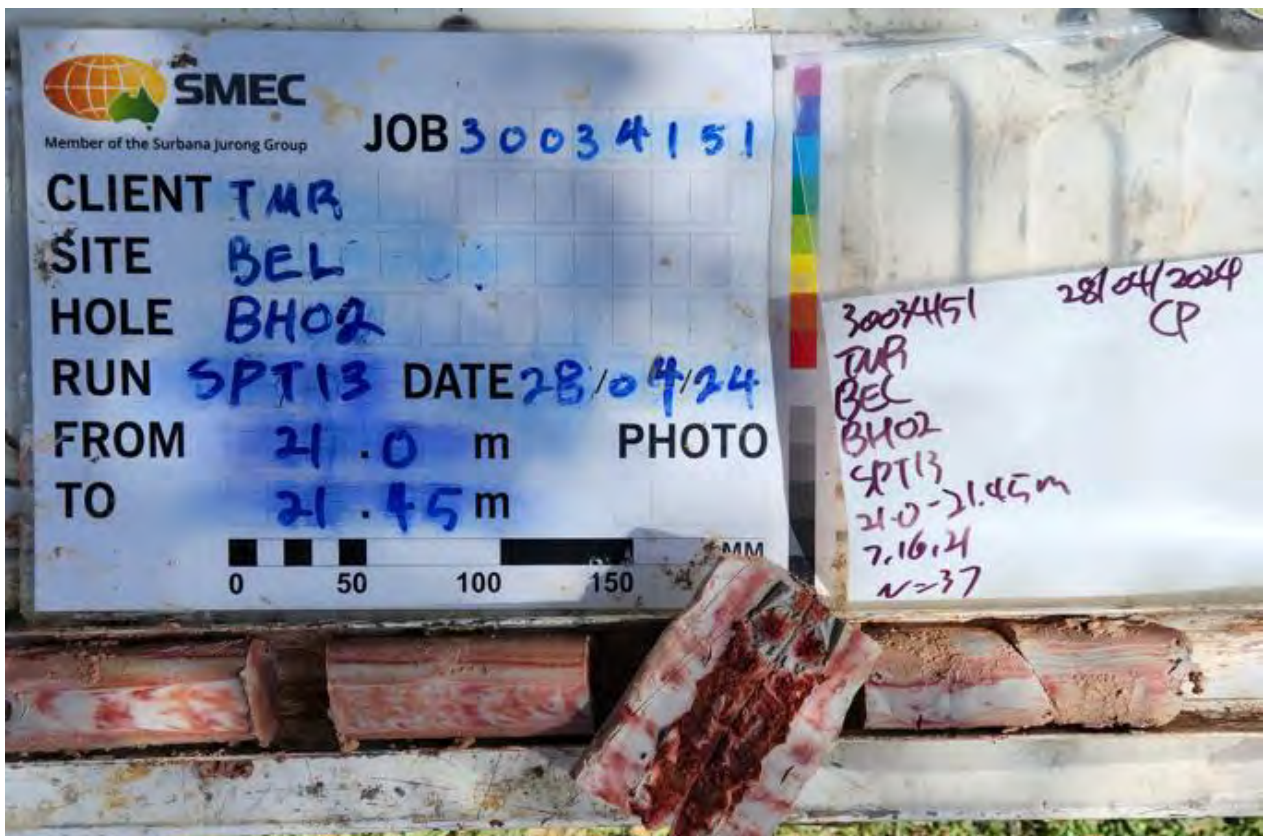 SMEC
Member of the Surbana Jurong Group
JOB 30034151
CLIENT TMR
SITE BEL
HOLE BH02
RUN SPT13 DATE 28/04/24
FROM 21.0 m PHOTO
TO 21.45 m
MM
0 50 100 150
28/04/2024
30034151 CP
TMR
BEL
BH02
SPT13
21.0-21.45m
7,16,21
N=37